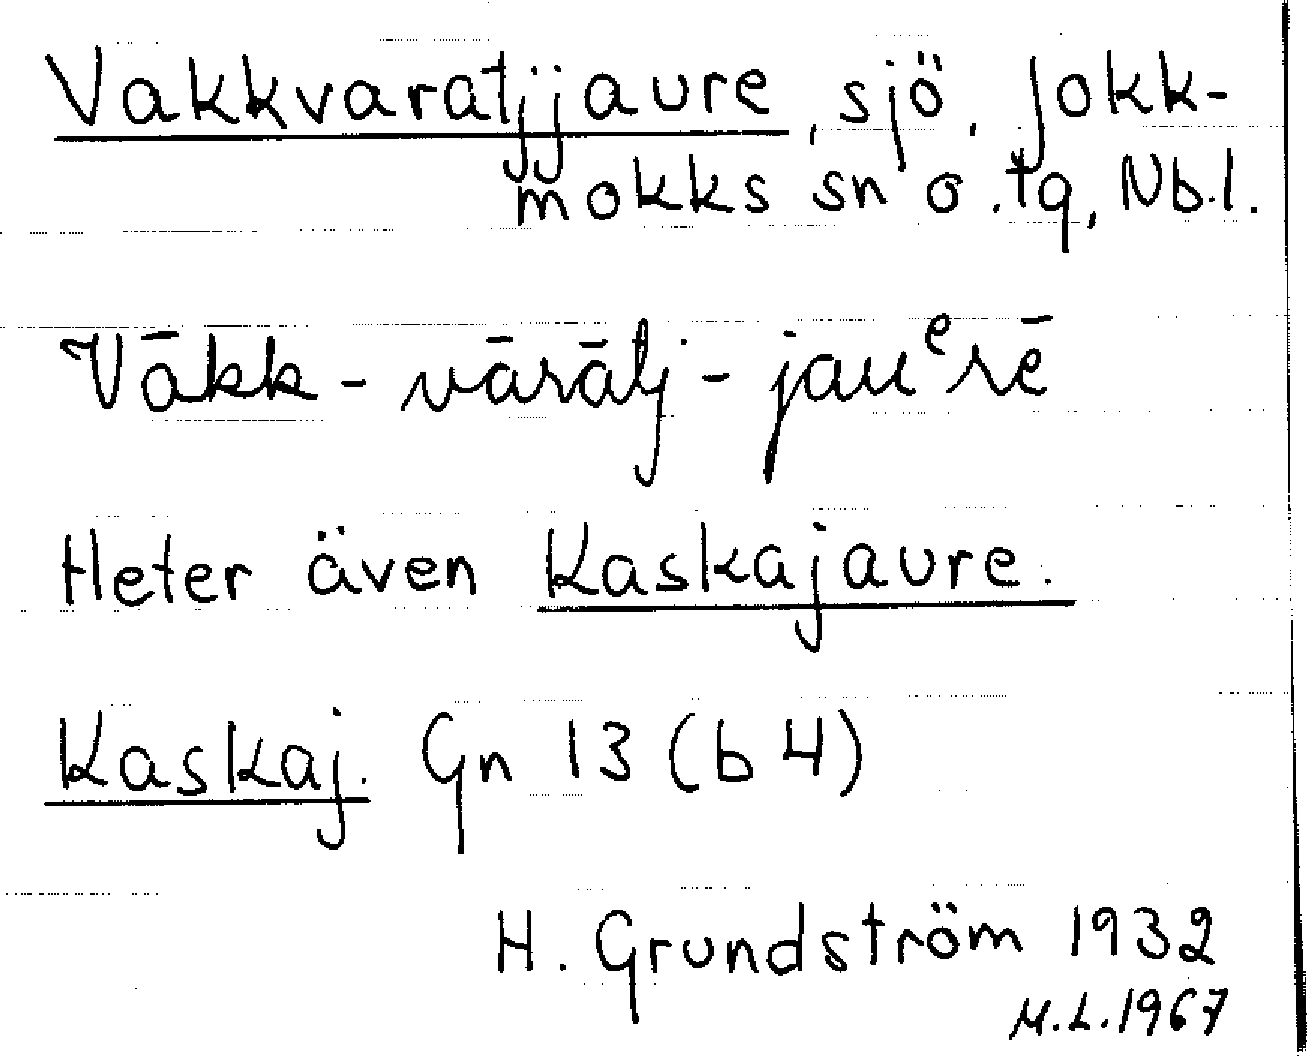 Vakkvaratjjaure, sjö, Jokk-
mokks sn o. tg, Nb.l.
Vākk - vārātj - jauᵉrē
Heter även Kaskajaure.
Kaskaj. Gn 13 (b4)
H. Grundström 1932
M.L. 1967